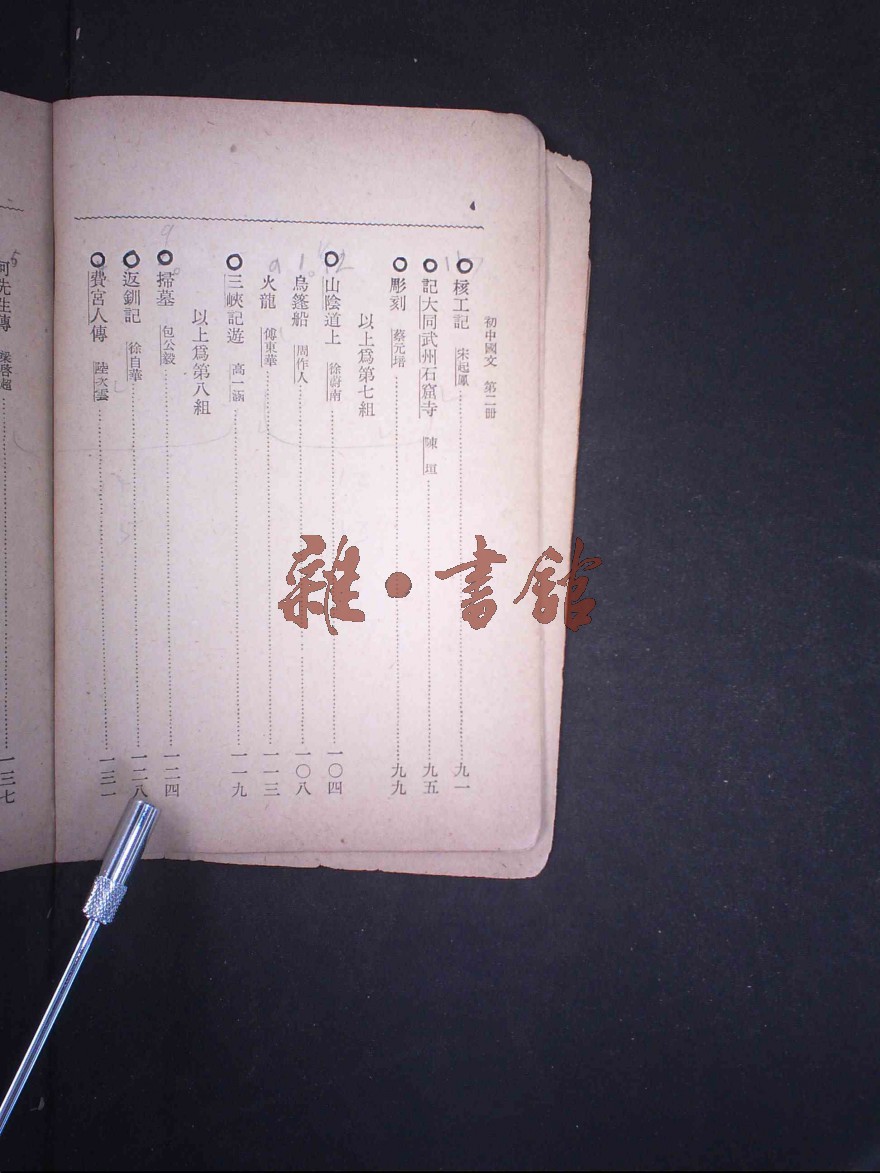 初中國文 第二冊
核工記 宋起鳳 九一
記大同武州石窟寺 陳垣 九五
彫刻 蔡元培 九九
以上爲第七組
山陰道上 徐蔚南 一〇四
烏篷船 周作人 一〇八
火龍 傅東華 一一三
三峽記遊 高一涵 一一九
以上爲第八組
掃墓 包公毅 一二四
返釧記 徐自華 一二八
費宮人傳 陸次雲 一三一
何先生傳 梁啓超 一三七
雜·書館